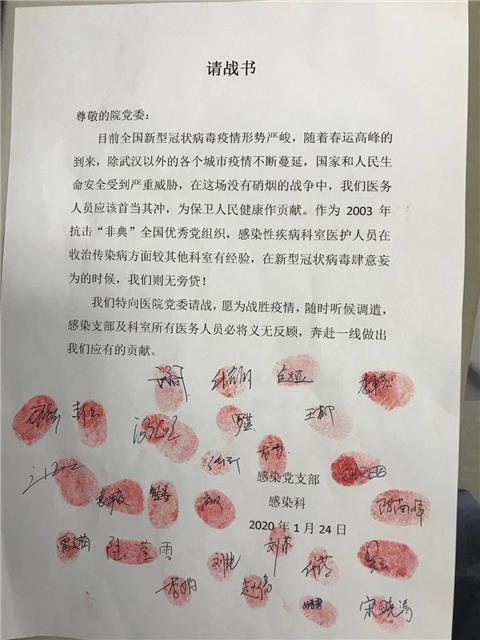 请战书
尊敬的院党委：
目前全国新型冠状病毒疫情形势严峻，随着春运高峰的
到来，除武汉以外的各个城市疫情不断蔓延，国家和人民生
命安全受到严重威胁，在这场没有硝烟的战争中，我们医务
人员应该首当其冲，为保卫人民健康作贡献。作为 2003 年
抗击“非典”全国优秀党组织，感染性疾病科室医护人员在
收治传染病方面较其他科室有经验，在新型冠状病毒肆意妄
为的时候，我们则无旁贷！
我们特向医院党委请战，愿为战胜疫情，随时听候调遣，
感染支部及科室所有医务人员必将义无反顾，奔赴一线做出
我们应有的贡献。
王柳
感染党支部
感染科
2020 年 1 月 24 日
陆莹雪
刘艳
刘芬
李娜
宋晓涛